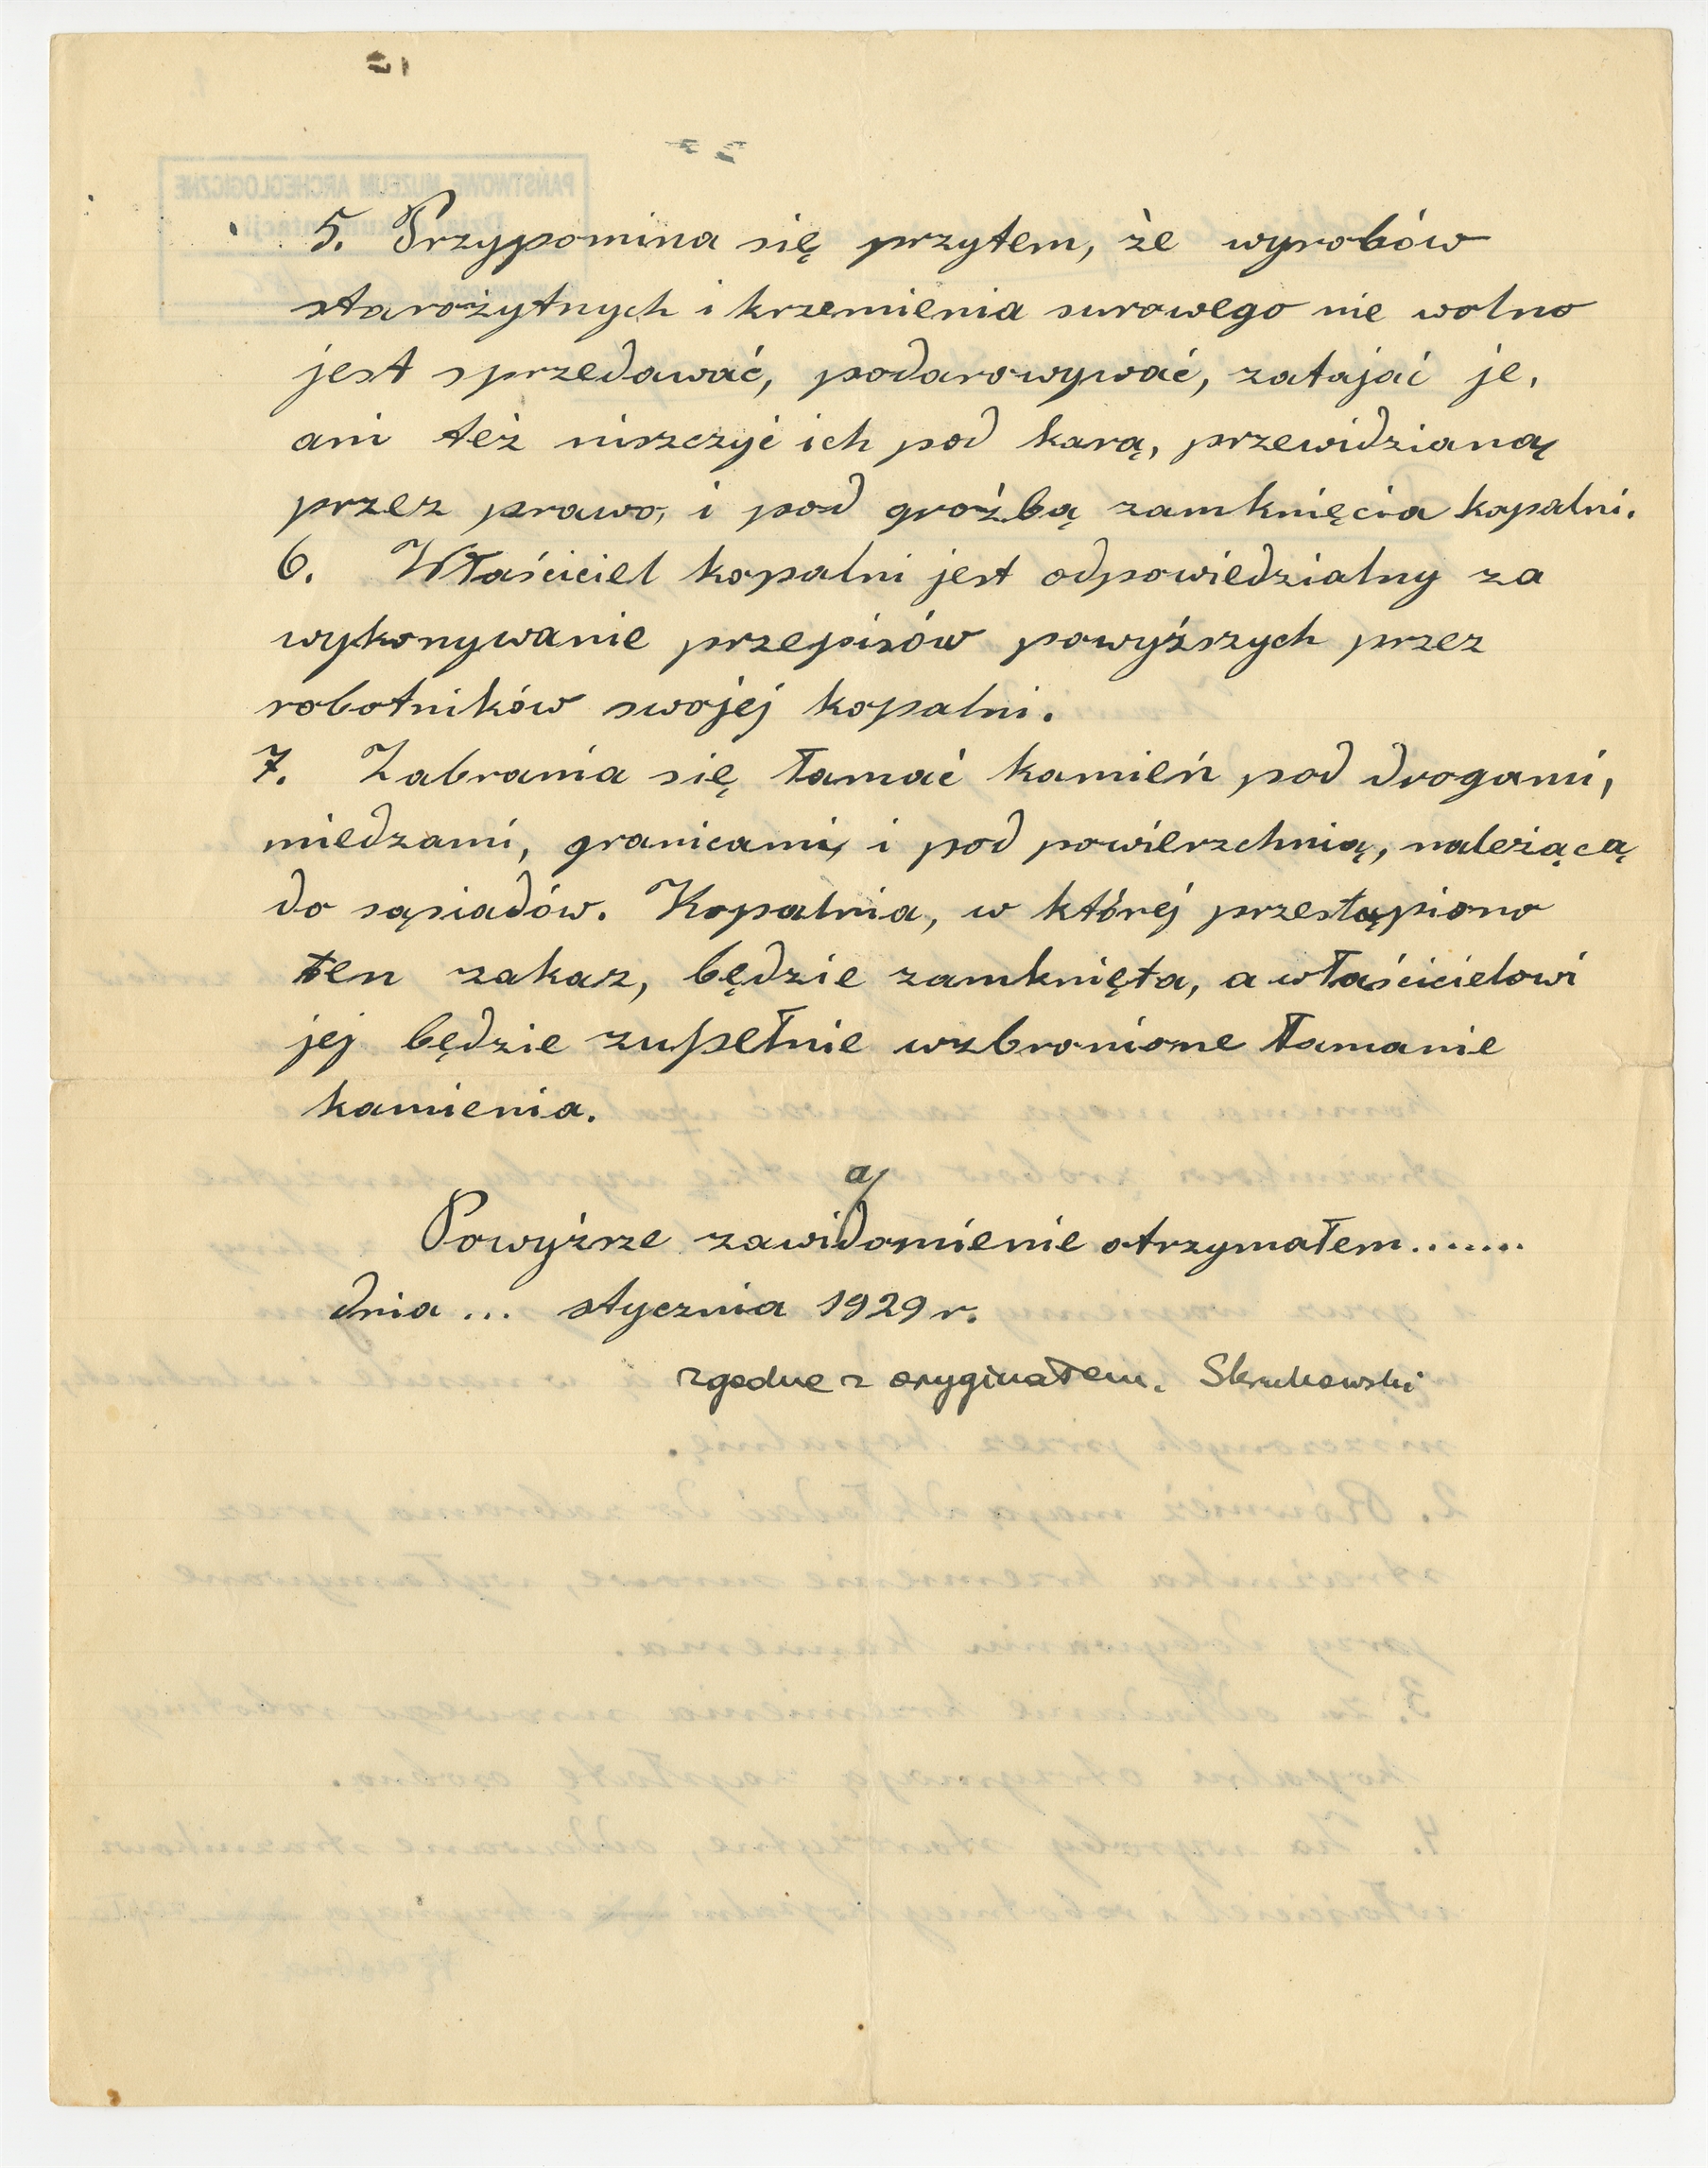 5. Przypomina się przytem, że wyrobów
starożytnych i krzemienia surowego nie wolno
jest sprzedawać, podarowywać, zatajać je,
ani też niszczyć ich pod karą, przewidzianą
przez prawo, i pod groźbą zamknięcia kopalni.
6. Właściciel kopalni jest odpowiedzialny za
wykonywanie przepisów powyższych przez
robotników swojej kopalni.
7. Zabrania się łamać kamień pod drogami,
miedzami, granicami, i pod powierzchnią, należącą
do sąsiadów. Kopalnia, w której przestąpiono
ten zakaz, będzie zamknięta, a właścicielowi
jej będzie zupełnie wzbronione łamanie
kamienia.
a
Powyższe zawidomienie otrzymałem.......
dnia ... stycznia 1929 r.
zgodne z oryginałem. Skrukowski
PAŃSTWOWE MUZEUM ARCHEOLOGICZNE